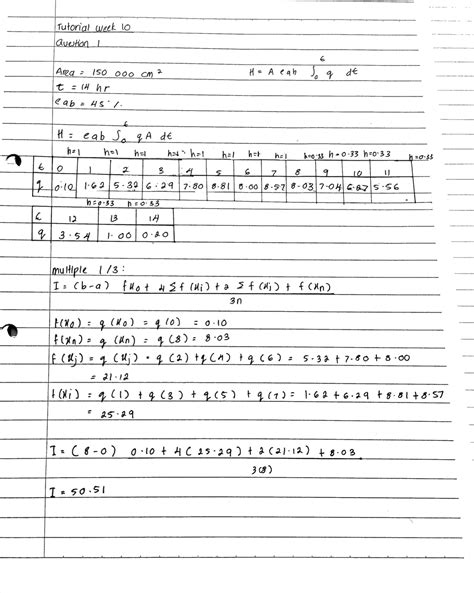 Tutorial week 10
Question 1
Area = 150 000 cm² H = A eab ∫₀ᵗ q dt
t = 14 hr
eab = 45 %
H = eab ∫₀ᵗ q A dt
h=1 h=1 h=1 h=1 h=1 h=1 h=1 h=1 h=0.33 h=0.33 h=0.33 h=0.33
t 0 1 2 3 4 5 6 7 8 9 10 11
q 0.10 1.62 5.32 6.29 7.80 8.81 8.00 8.57 8.03 7.04 6.27 5.56
h=0.33 h=0.33
t 12 13 14
q 3.54 1.00 0.20
multiple 1/3 :
I = (b-a) fx₀ + 4 Σ f(xi) + 2 Σ f(xj) + f(xn)
3n
f(x₀) = q(x₀) = q(0) = 0.10
f(xn) = q(xn) = q(8) = 8.03
f(xj) = q(xj) = q(2) + q(4) + q(6) = 5.32 + 7.80 + 8.00
= 21.12
f(xi) = q(1) + q(3) + q(5) + q(7) = 1.62 + 6.29 + 8.81 + 8.57
= 25.29
I = (8-0) 0.10 + 4(25.29) + 2(21.12) + 8.03
3(8)
I = 50.51